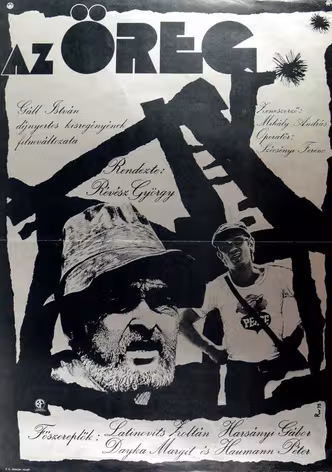 AZ ÖREG
Gáll István
díjnyertes kisregényének
filmváltozata
Zeneszerző:
Mihály András
Operatőr:
Szécsényi Ferenc
Rendezte:
Révész György
Főszereplők: Latinovits Zoltán Harsányi Gábor
Dayka Margit és Haumann Péter